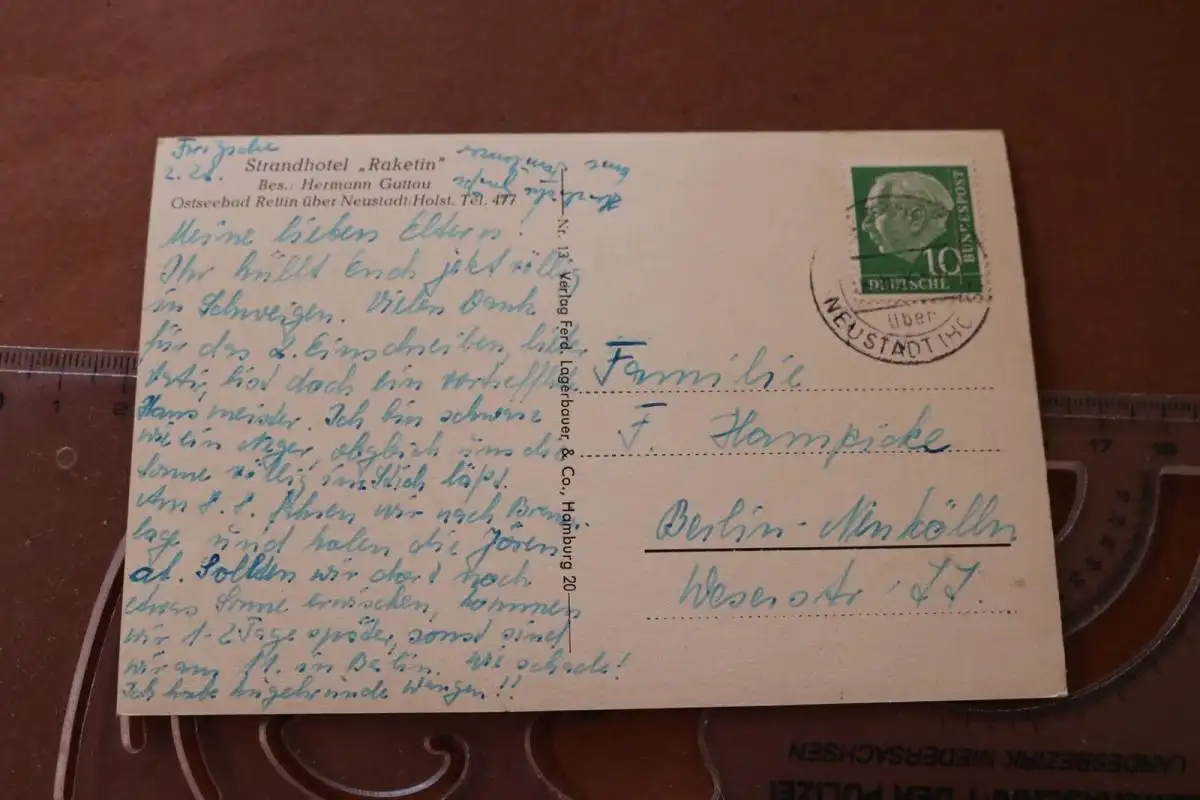 Strandhotel „Raketin"
Bes.: Hermann Guttau
Ostseebad Rettin über Neustadt/Holst. Tel. 477
Meine lieben Eltern!
Ihr hüllt Euch jetzt völlig
in Schweigen. Vielen Dank
für das 2. Einschreiben, lieber
Vati, bist doch ein vortreffl.
Hausmeister. Ich bin schwarz
wie ein Neger, obgleich uns die
Sonne völlig im Stich läßt.
Am 8.8. fahren wir nach
lage und holen die Jören
ab. Sollten wir dort noch
etwas Sonne erwischen, kommen
wir 1-2 Tage später, sonst sind
wir am 11. in Berlin. Wie schade!
Ich habe kugelrunde Wangen!!
Nr. 13 Verlag Ferd. Lagerbauer & Co., Hamburg 20
10
DEUTSCHE
BUNDESPOST
über
NEUSTADT (HO
Familie
F. Hampicke
Berlin-Neukölln
Weserstr. 77.
0 1 2
17 18
LANDESBEZIRK NIEDERSACHSEN
DER POLIZEI